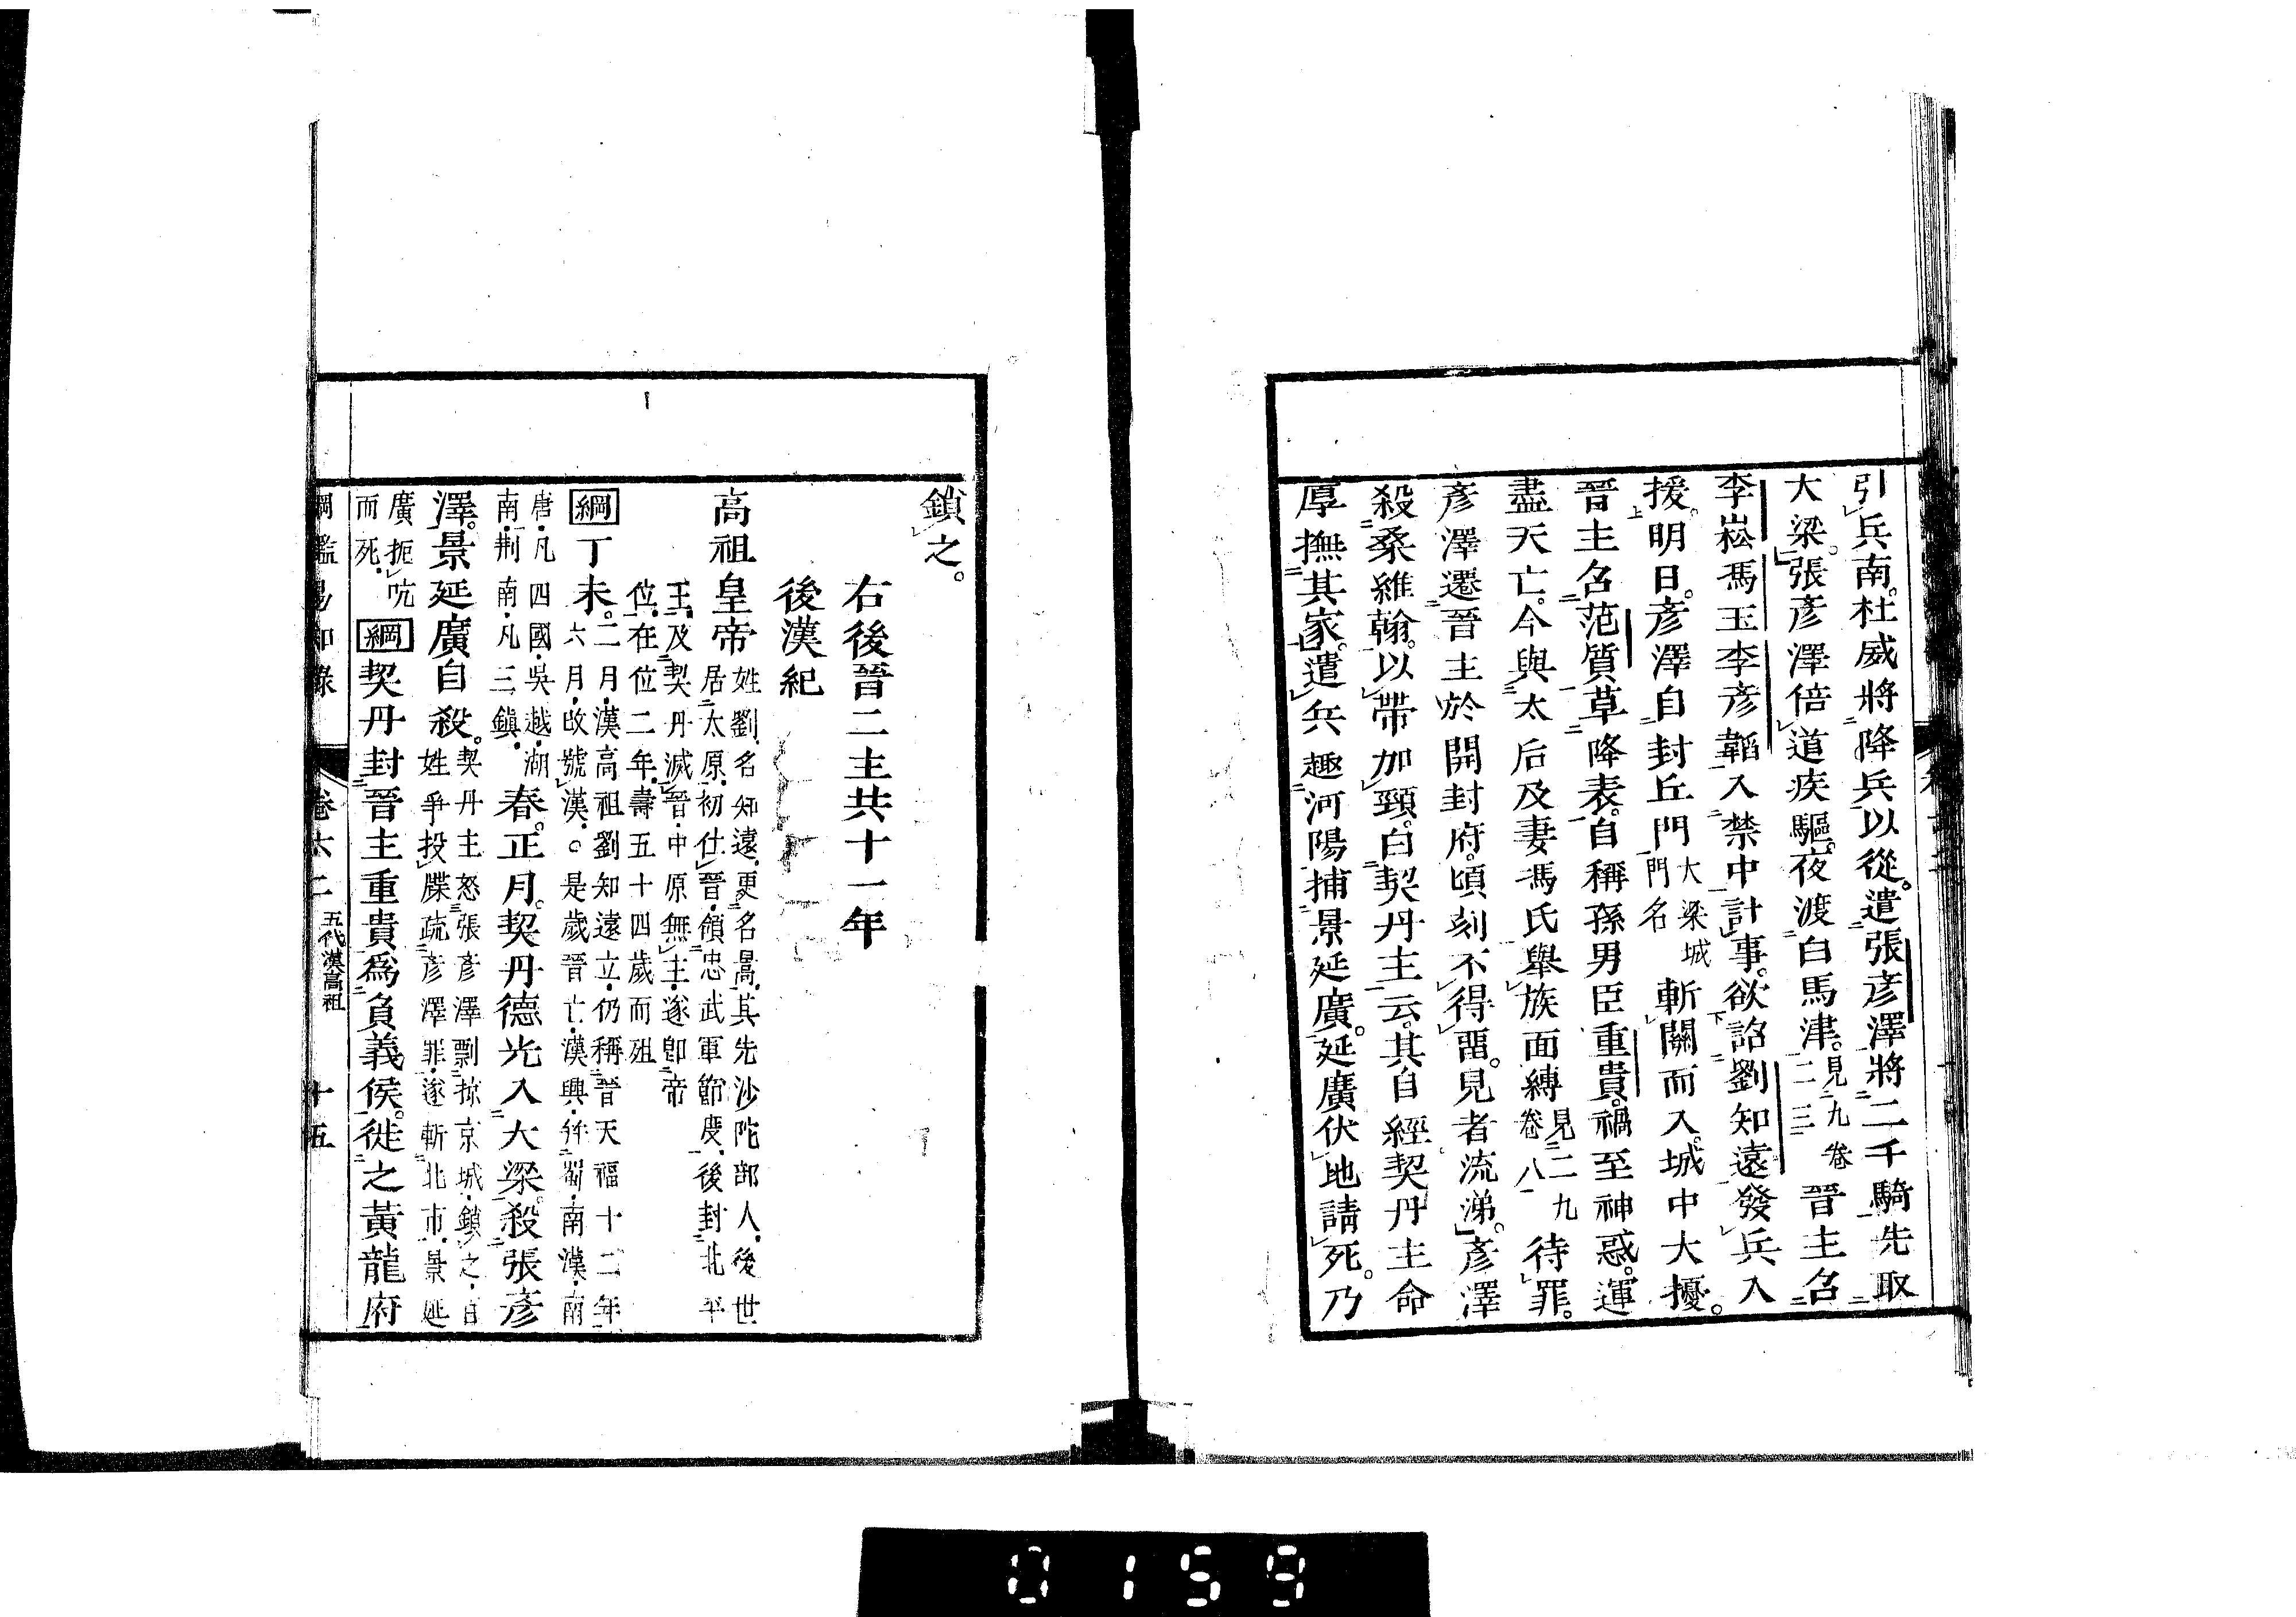 引兵南。杜威將降兵以從。遣張彥澤將二千騎先取
大梁。張彥澤倍道疾驅。夜渡白馬津。見九卷二三晉主召
李崧馮玉李彥韜入禁中計事。欲詔劉知遠發兵入
援。明日。彥澤自封丘門大梁城門名斬關而入。城中大擾。
晉主召范質草降表。自稱孫男臣重貴。禍至神惑。運
盡天亡。今與太后及妻馮氏舉族面縛見二九卷八待罪。
彥澤遷晉主於開封府。頃刻不得畱。見者流涕。彥澤
殺桑維翰。以帶加頸。白契丹主云。其自經。契丹主命
厚撫其家。遣兵趣河陽捕景延廣。延廣伏地請死。乃
鎖之。
右後晉二主共十一年
後漢紀
高祖皇帝姓劉、名知遠、更名暠、其先沙陀部人、後世居太原、初仕晉、領忠武軍節度、後封北平
王、及契丹滅晉、中原無主、遂卽帝位、在位二年、壽五十四歲而殂
綱丁未。二月、漢高祖劉知遠立、仍稱晉天福十二年、六月、改號漢、○是歲晉亡、漢興、幷蜀、南漢、南
唐、凡四國、吳越、湖南、荆南、凡三鎭、春。正月。契丹德光入大梁。殺張彥
澤。景延廣自殺。契丹主怒張彥澤剽掠京城、鎖之、百姓爭投牒疏彥澤罪、遂斬北市、景延
廣扼吭而死、綱契丹封晉主重貴爲負義侯。徙之黃龍府
綱鑑易知錄 卷六二 五代漢高祖 十五
0159